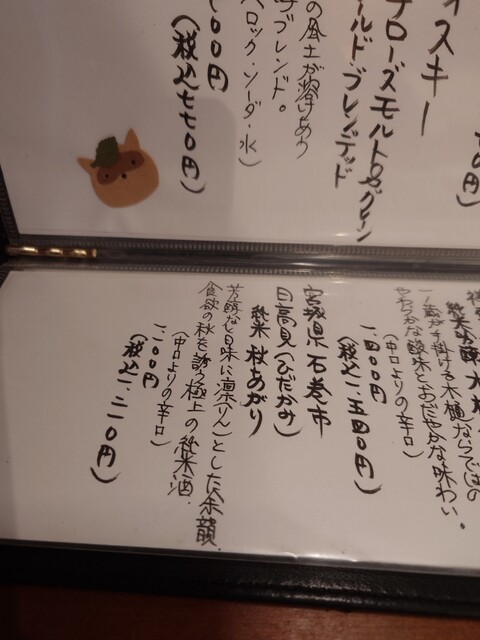 ィスキー
ローズモルト&グレーン
ールド・ブレンデッド
の風土が溶けあう
ブレンド。
ロック・ソーダ・水)
00円
(税込七七0円)
純米吟醸
一蔵が手掛ける木桶ならではの
やわらかな酸味とおだやかな味わい。
(中口よりの辛口)
一四00円
(税込一、五四0円)
宮城県 石巻市
日高見(ひだかみ)
純米 秋あがり
芳醇な旨味に凛(りん)とした余韻。
食欲の秋を誘う極上の純米酒。
(中口よりの辛口)
(税込一、二一0円)